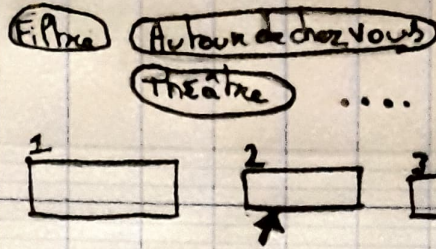 Filtre Autour de chez vous
Théâtre ....
1 2 3